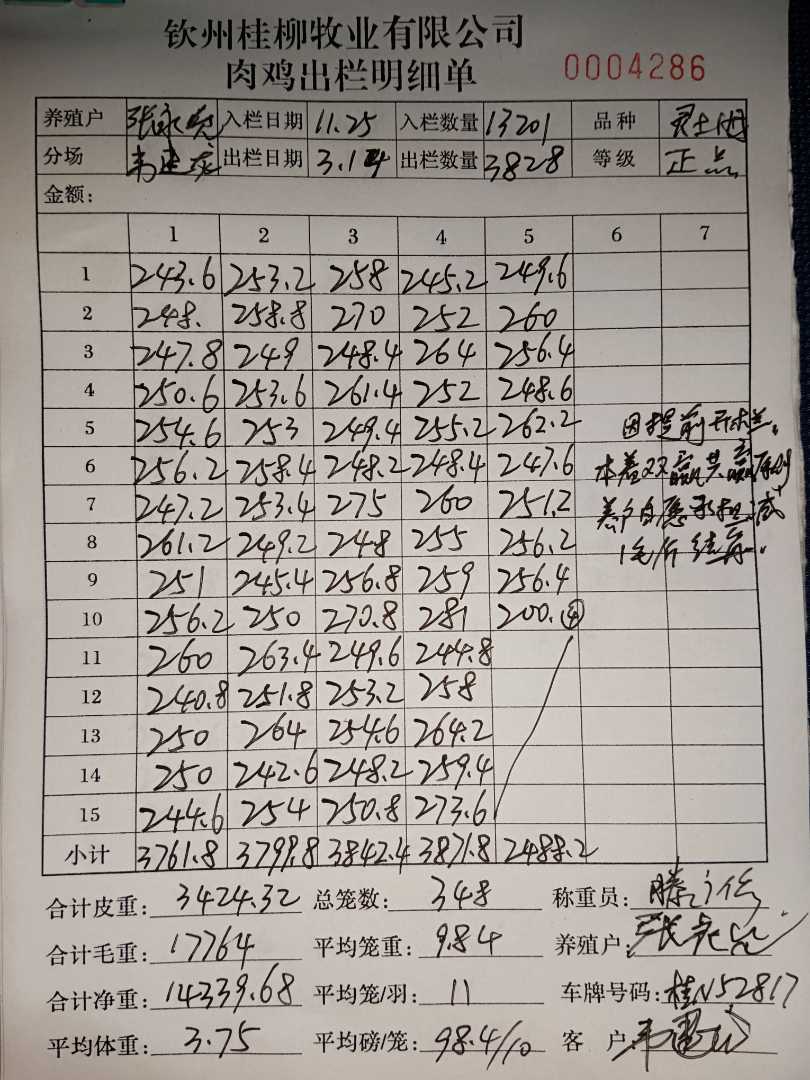 钦州桂柳牧业有限公司
肉鸡出栏明细单 0004286
养殖户 入栏日期 11.25 入栏数量 13201 品种
分场 出栏日期 3.14 出栏数量 3828 等级 正品
金额:
1 2 3 4 5 6 7
1 243.6 253.2 258 245.2 249.6
2 248. 258.8 270 252 260
3 247.8 249 248.4 264 256.4
4 250.6 253.6 261.4 252 248.6
5 254.6 253 249.4 255.2 262.2 因提前开未兰,
6 256.2 258.4 248.2 248.4 247.6 本着双赢共赢原则
7 247.2 253.4 275 260 251.2 养户自愿承担减
8 261.2 249.2 248 255 256.2 1毛/斤结算.
9 251 245.4 256.8 259 256.4
10 256.2 250 270.8 281 200. ④
11 260 263.4 249.6 244.8
12 240.8 251.8 253.2 258
13 250 264 254.6 264.2
14 250 242.6 248.2 259.4
15 244.6 254 250.8 273.6
小计 3761.8 3799.8 3842.4 3871.8 2488.2
合计皮重: 3424.32 总笼数: 348 称重员:
合计毛重: 17764 平均笼重: 9.84 养殖户:
合计净重: 14339.68 平均笼/羽: 11 车牌号码: 桂N52817
平均体重: 3.75 平均磅/笼: 98.4/10 客户: